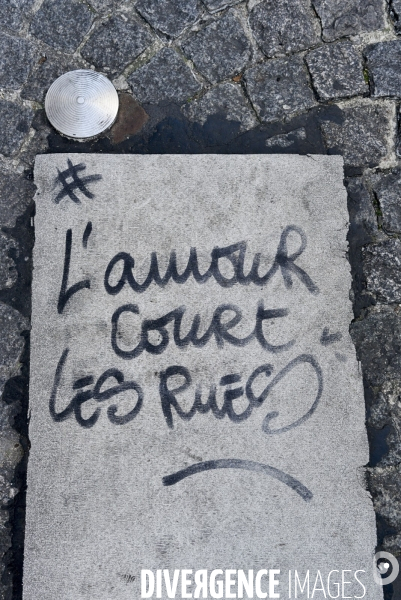 #
L'amour
court
LES RUES
DIVERGENCE IMAGES